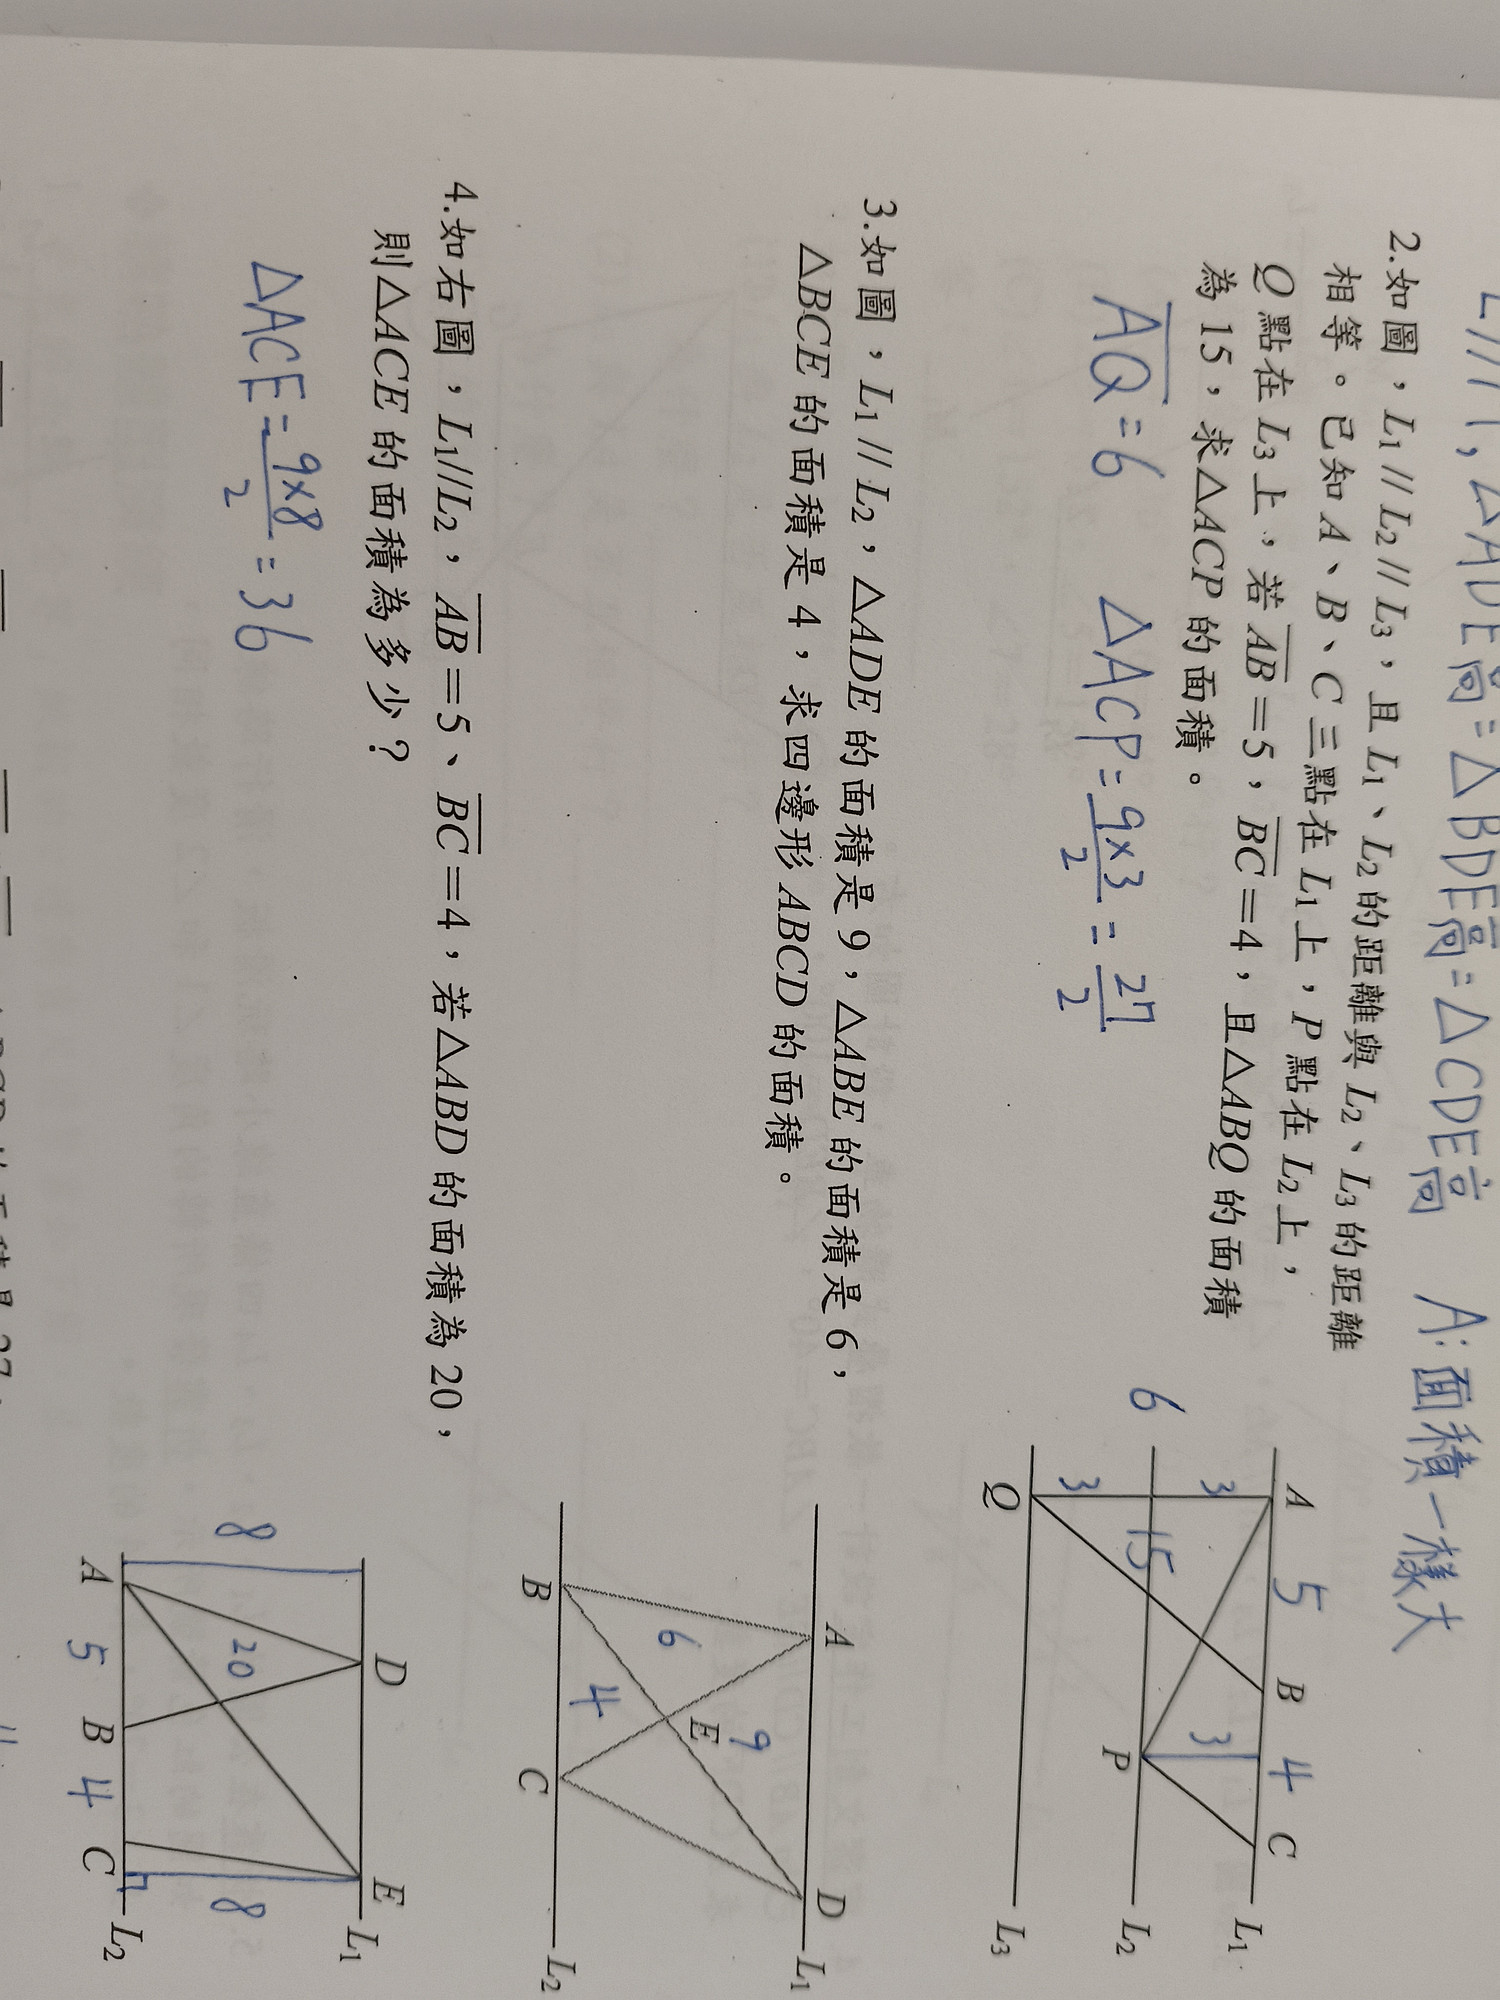 L//1,△ADE高=△BDE高=△CDE高 A:面積一樣大
2.如圖,L1//L2//L3,且L1、L2的距離與L2、L3的距離
相等。已知A、B、C三點在L1上,P點在L2上,
Q點在L3上,若AB=5,BC=4,且△ABQ的面積
為15,求△ACP的面積。
AQ=6 △ACP=9×3/2=27/2
A 5 B 4 C L1
3 3
6 15 P L2
3
Q L3
3.如圖,L1//L2,△ADE的面積是9,△ABE的面積是6,
△BCE的面積是4,求四邊形ABCD的面積。
A D L1
9
6 E
4
B C L2
4.如右圖,L1//L2,AB=5、BC=4,若△ABD的面積為20,
則△ACE的面積為多少?
△ACE=9×8/2=36
D E L1
8 20 8
A 5 B 4 C L2